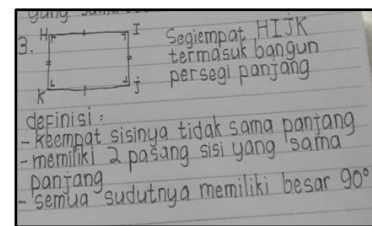 yang sama
3. H I Segiempat HIJK
termasuk bangun
persegi panjang
K j
definisi :
- keempat sisinya tidak sama panjang
- memiliki 2 pasang sisi yang sama
panjang
- semua sudutnya memiliki besar 90°